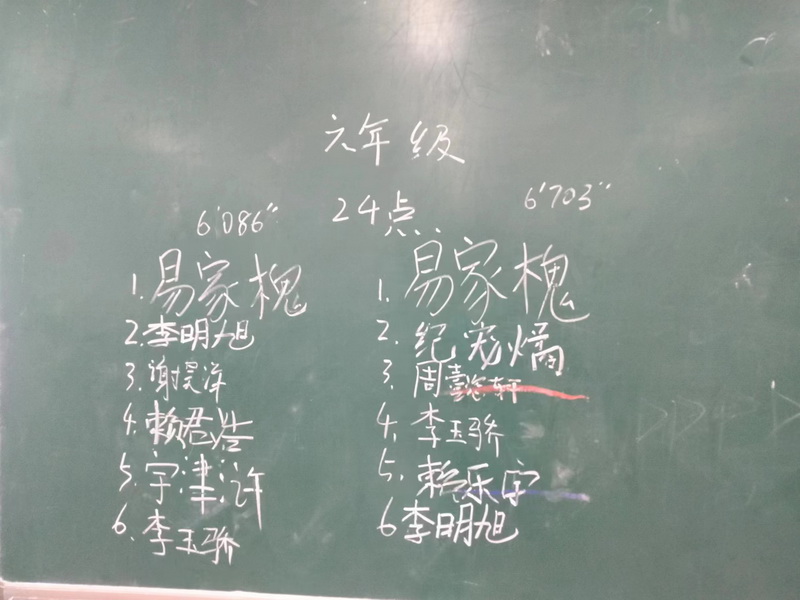 六年级
24点
6'086"
1.易家槐
2.李明旭
3.谢昊洋
4.赖君浩
5.宇津浒
6.李玉骄
6'703"
1.易家槐
2.纪宠熵
3.周懿轩
4.李玉骄
5.赖乐宇
6李明旭